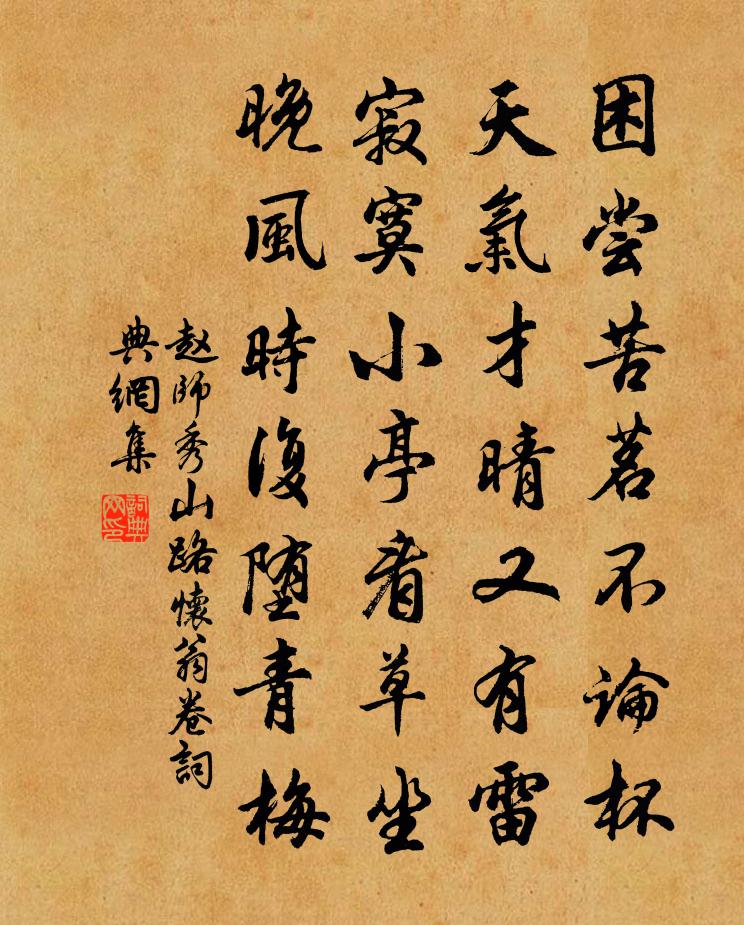 困尝苦茗不論杯
天氣才晴又有雷
寂寞小亭看草坐
晚風時復墮青梅
赵師秀山路懷翁卷詞
典網集
詞典
網印